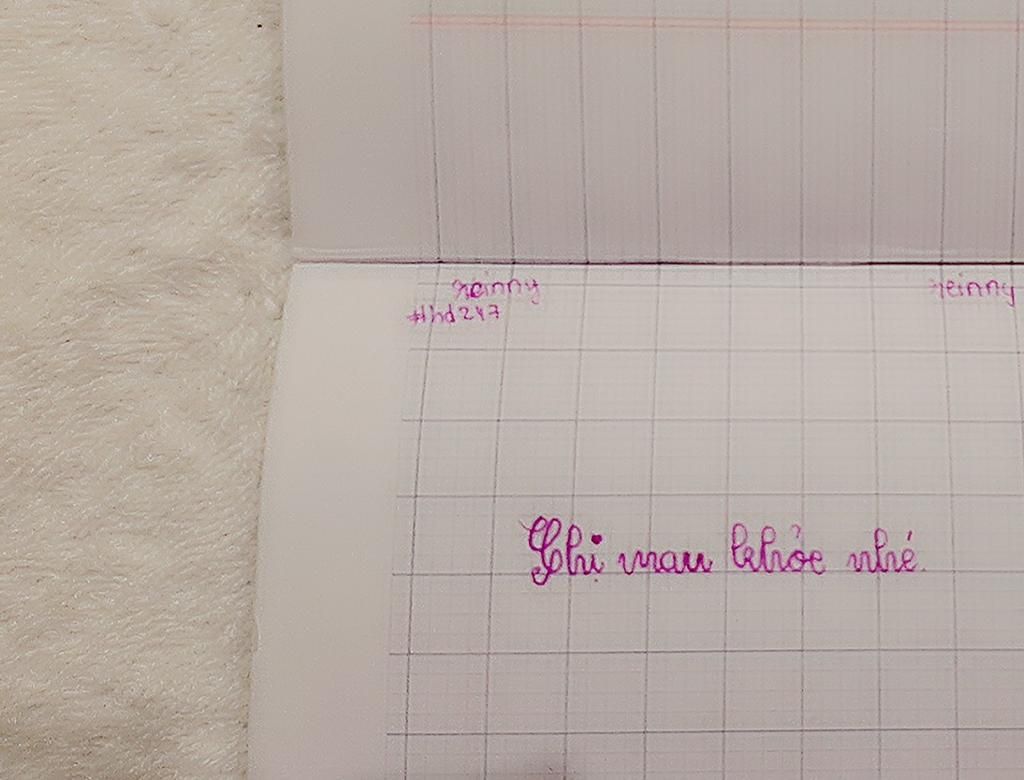 reinny reinny
#hd247
Chị mau khỏe nhé.